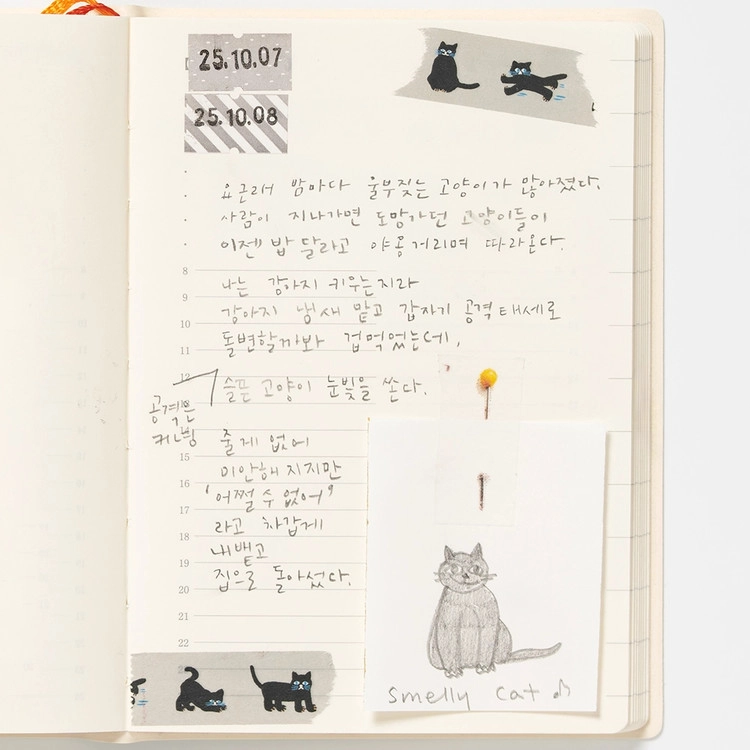 25.10.07
25.10.08
요근래 밤마다 울부짖는 고양이가 많아졌다.
사람이 지나가면 도망가던 고양이들이
이젠 밥 달라고 야옹거리며 따라온다.
8
나는 강아지 키우는지라
9
강아지 냄새 맡고 갑자기 공격태세로
10
돌변할까봐 겁먹었는데,
11
12
슬픈 고양이 눈빛을 쏜다.
공격은
커녕
줄게 없어
15
미안해지지만
16
'어쩔 수 없어'
17
라고 차갑게
18
내뱉고
19
집으로 돌아섰다.
20
21
22
smelly cat ♪